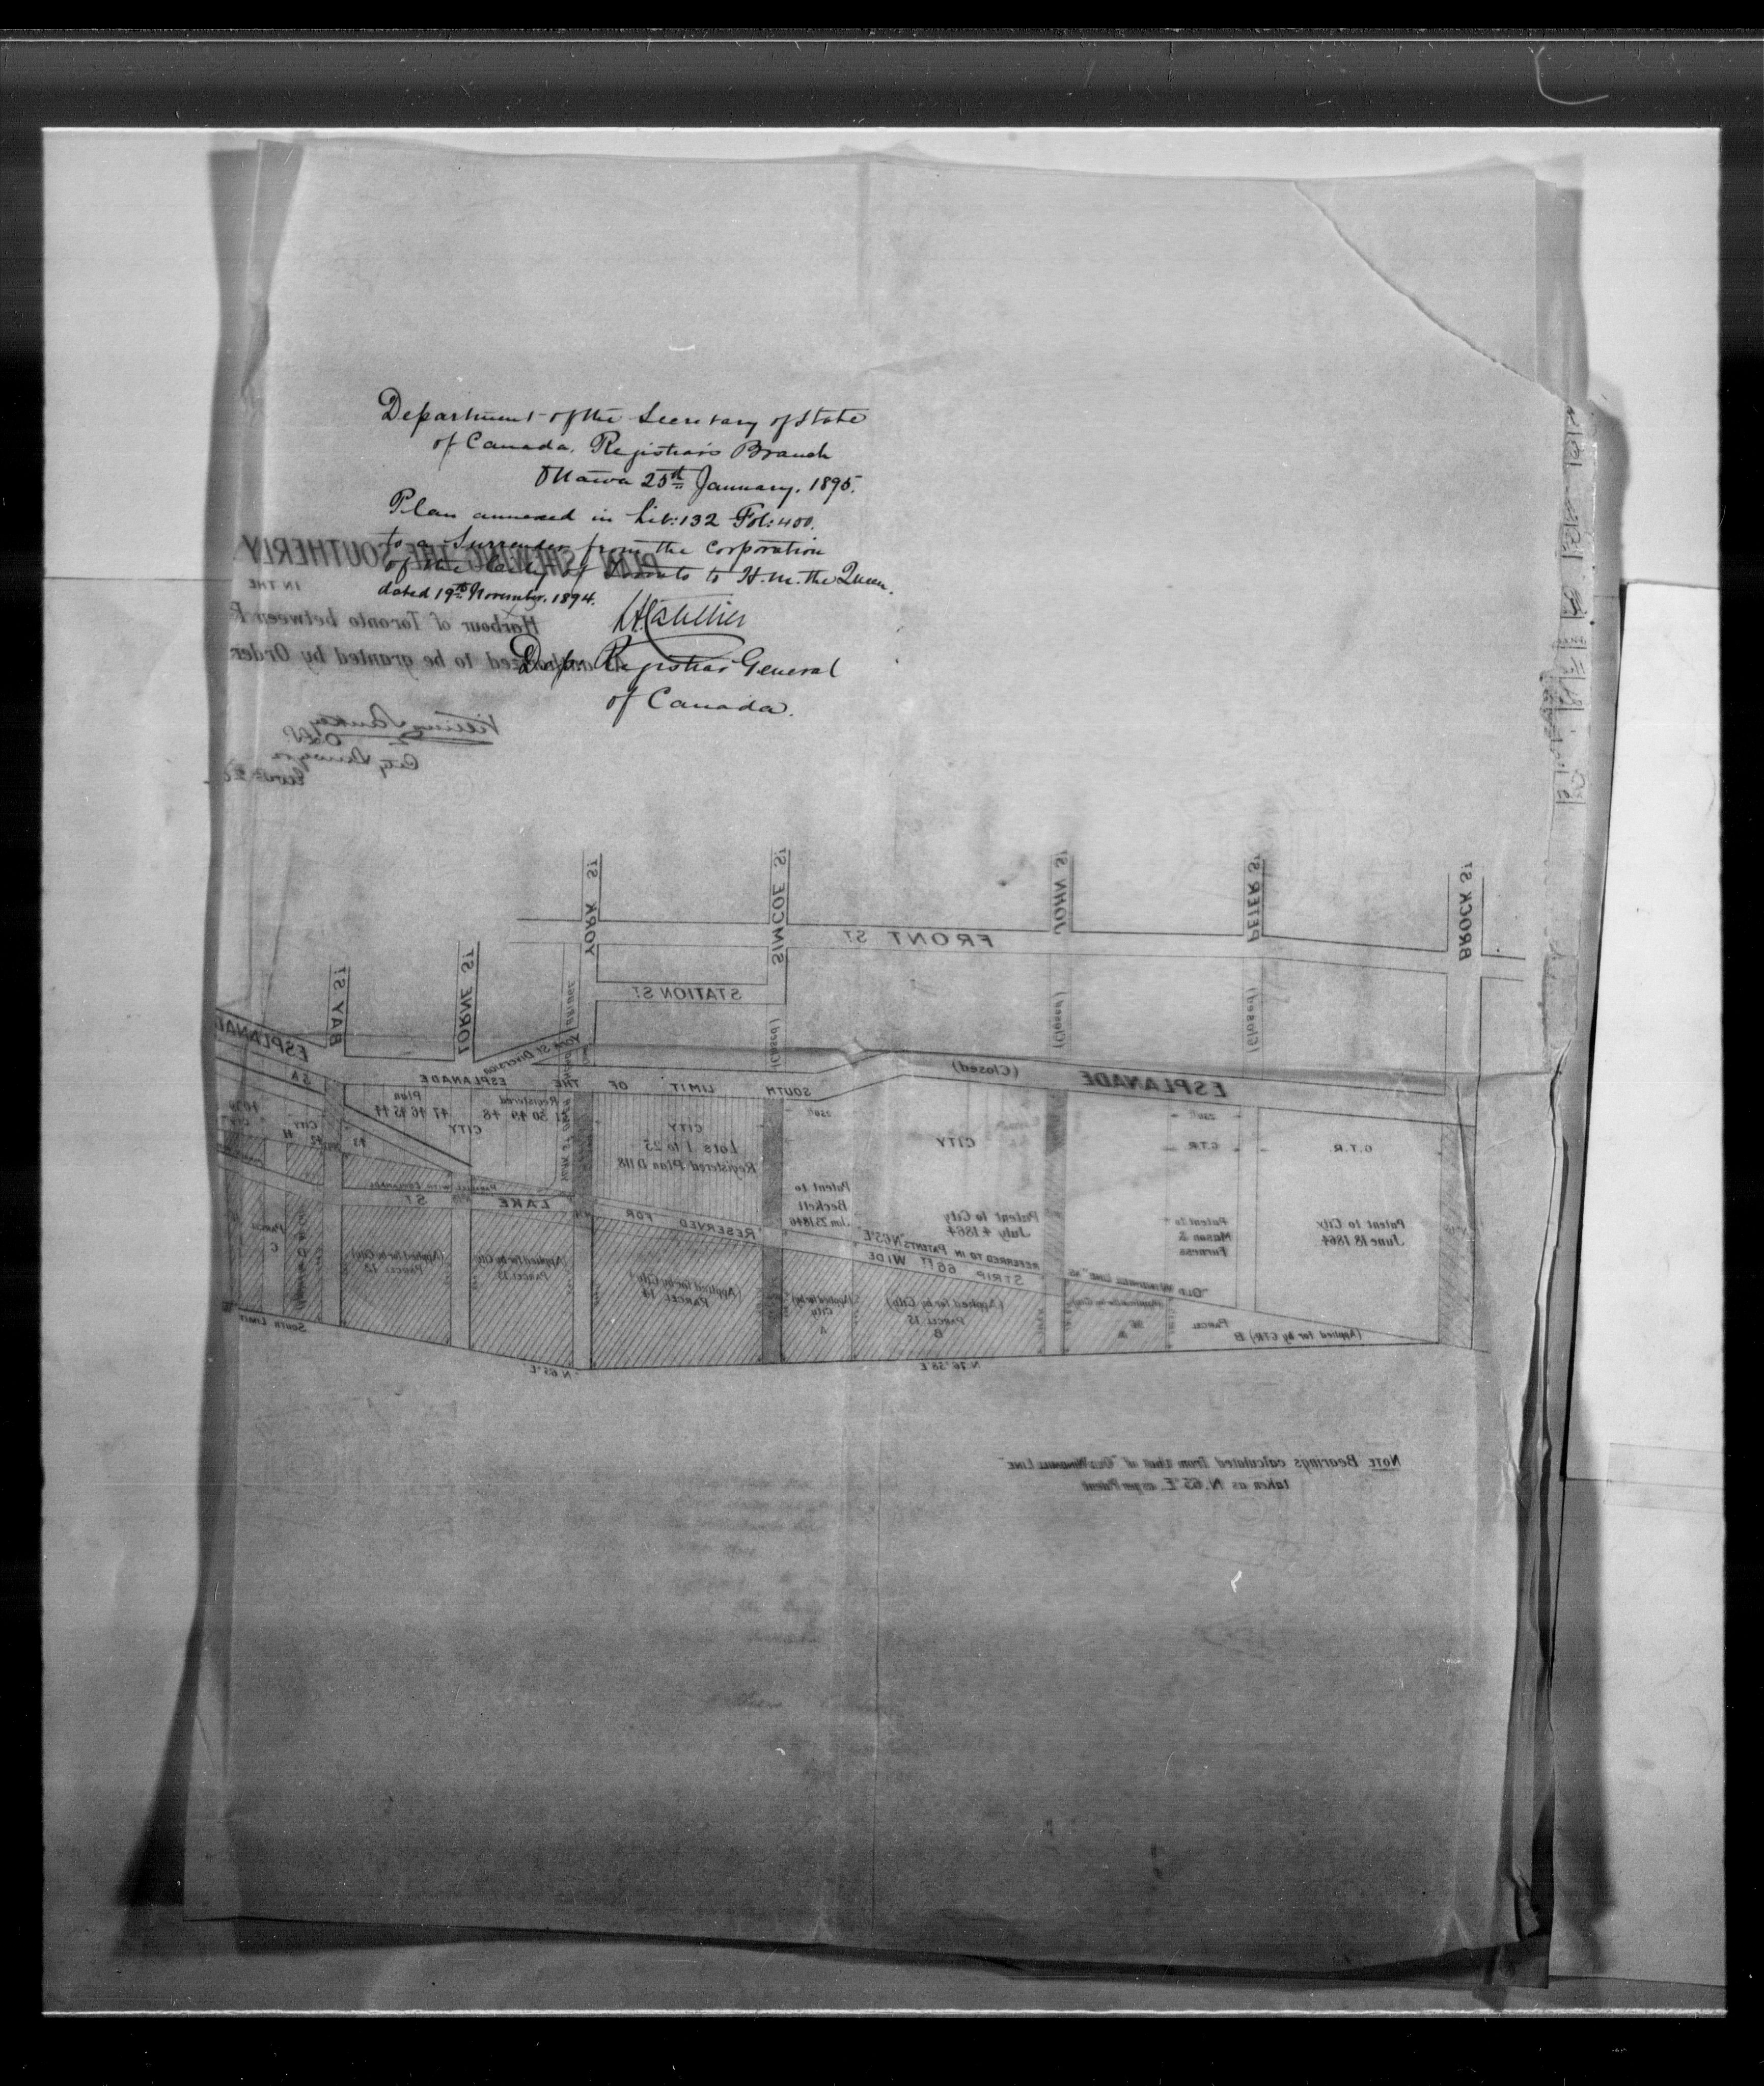 Department of the Secretary of State
of Canada. Registrar's Branch
Ottawa 25th January. 1895.
Plan annexed in Lib: 132 Fol: 400.
to a Surrender from the Corporation
of the City of Toronto to H.M. the Queen.
dated 19th November. 1894.
Dep. Registrar General
of Canada.
PLAN SHEWING THE SOUTHERLY
IN THE
Harbour of Toronto between
to be granted by Order
City Surveyor
YORK ST
SIMCOE ST
JOHN ST
PETER ST
BROCK ST
FRONT ST
BAY ST
LORNE ST
STATION ST
(Closed)
(Closed)
(Closed)
YORK ST DIVERSION
ESPLANADE
ESPLANADE (Closed)
SOUTH LIMIT OF THE ESPLANADE
Registered Plan
51 50 49 48 47 46 45 44
CITY
CITY
Lots 1 to 25
Registered Plan D118
CITY
G.T.R.
G.T.R.
Patent to
Beckett
Jan. 23. 1846
Patent to City
July 4 1864
Patent to
Mason &
Furness
Patent to City
June 18. 1864
RESERVED FOR LAKE ST
STRIP 66 FT WIDE
REFERRED TO IN PATENTS "N65°E"
"OLD WINDMILL LINE" AS
PARCEL
C
(Applied for by City)
PARCEL 12
(Applied for by City)
PARCEL 13
(Applied for by City)
PARCEL 14
(Applied for by)
City
A
(Applied for by City)
PARCEL 15
B
PARCEL
(Applied for by GTR) B
SOUTH LIMIT
N. 65° E.
N. 76° 58' E
NOTE Bearings calculated from that of "OLD WINDMILL LINE"
taken as N. 65° E. as per Patent